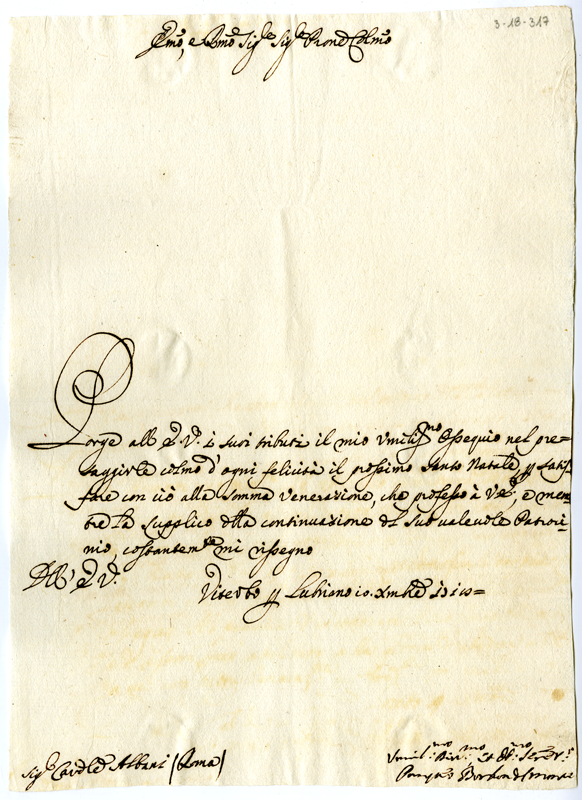 3-18-317
Emo, e Rmo Sigre Sigre Prone Colmo
Porge all E. V. i suoi tributi il mio Vmilissmo Ossequio nel pre=
saggirle colmo d'ogni felicità il prossimo Santo Natale p satis
fare con ciò alla somma Venerazione, che professo à V.E., e men
tre La supplico dlla continuazione del suo valevole Patroci=
nio, costantemte mi rissegno
Dll' E. V.
Viterbo p Lubriano 10. Xmbre
Sigr Cardle Albani (Roma)
Vmilmo Divmo et Obmo Servre
Borbon del Monte